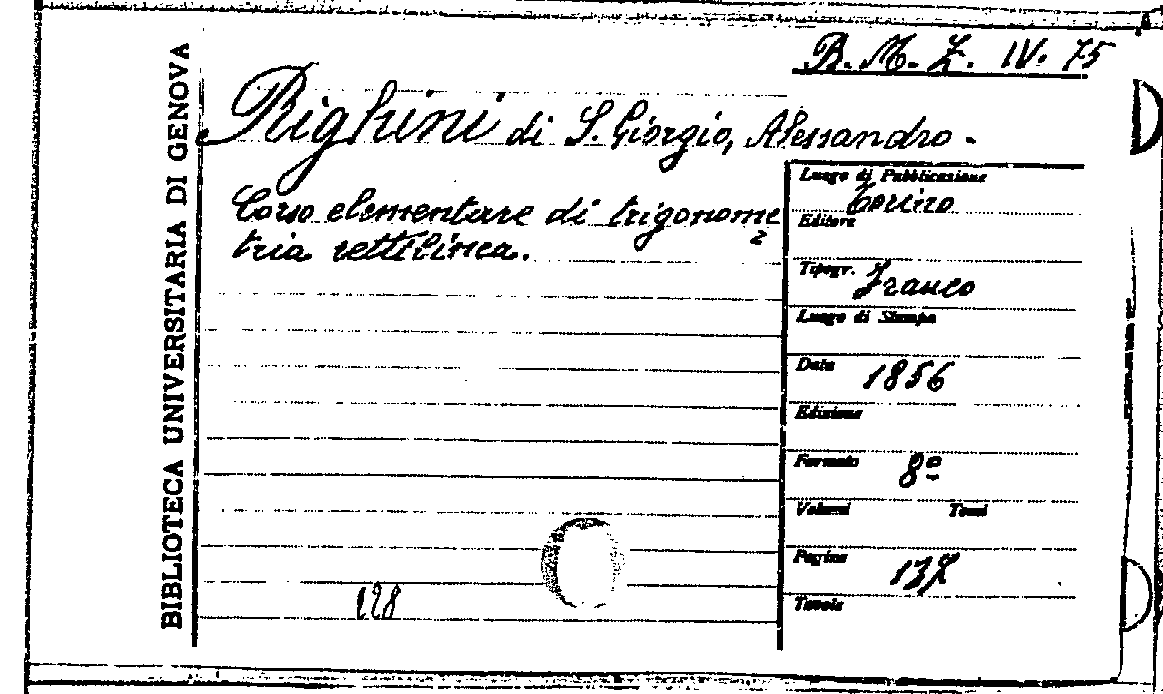 B. M. Z. IV. 75
BIBLIOTECA UNIVERSITARIA DI GENOVA
Righini di S. Giorgio, Alessandro -
Corso elementare di trigonome
tria rettilinea.
2
Luogo di Pubblicazione
Torino
Editore
Tipogr. Franco
Luogo di Stampa
Data 1856
Edizione
Formato 8º
Volumi Tomi
Pagine 137
Tavole
128